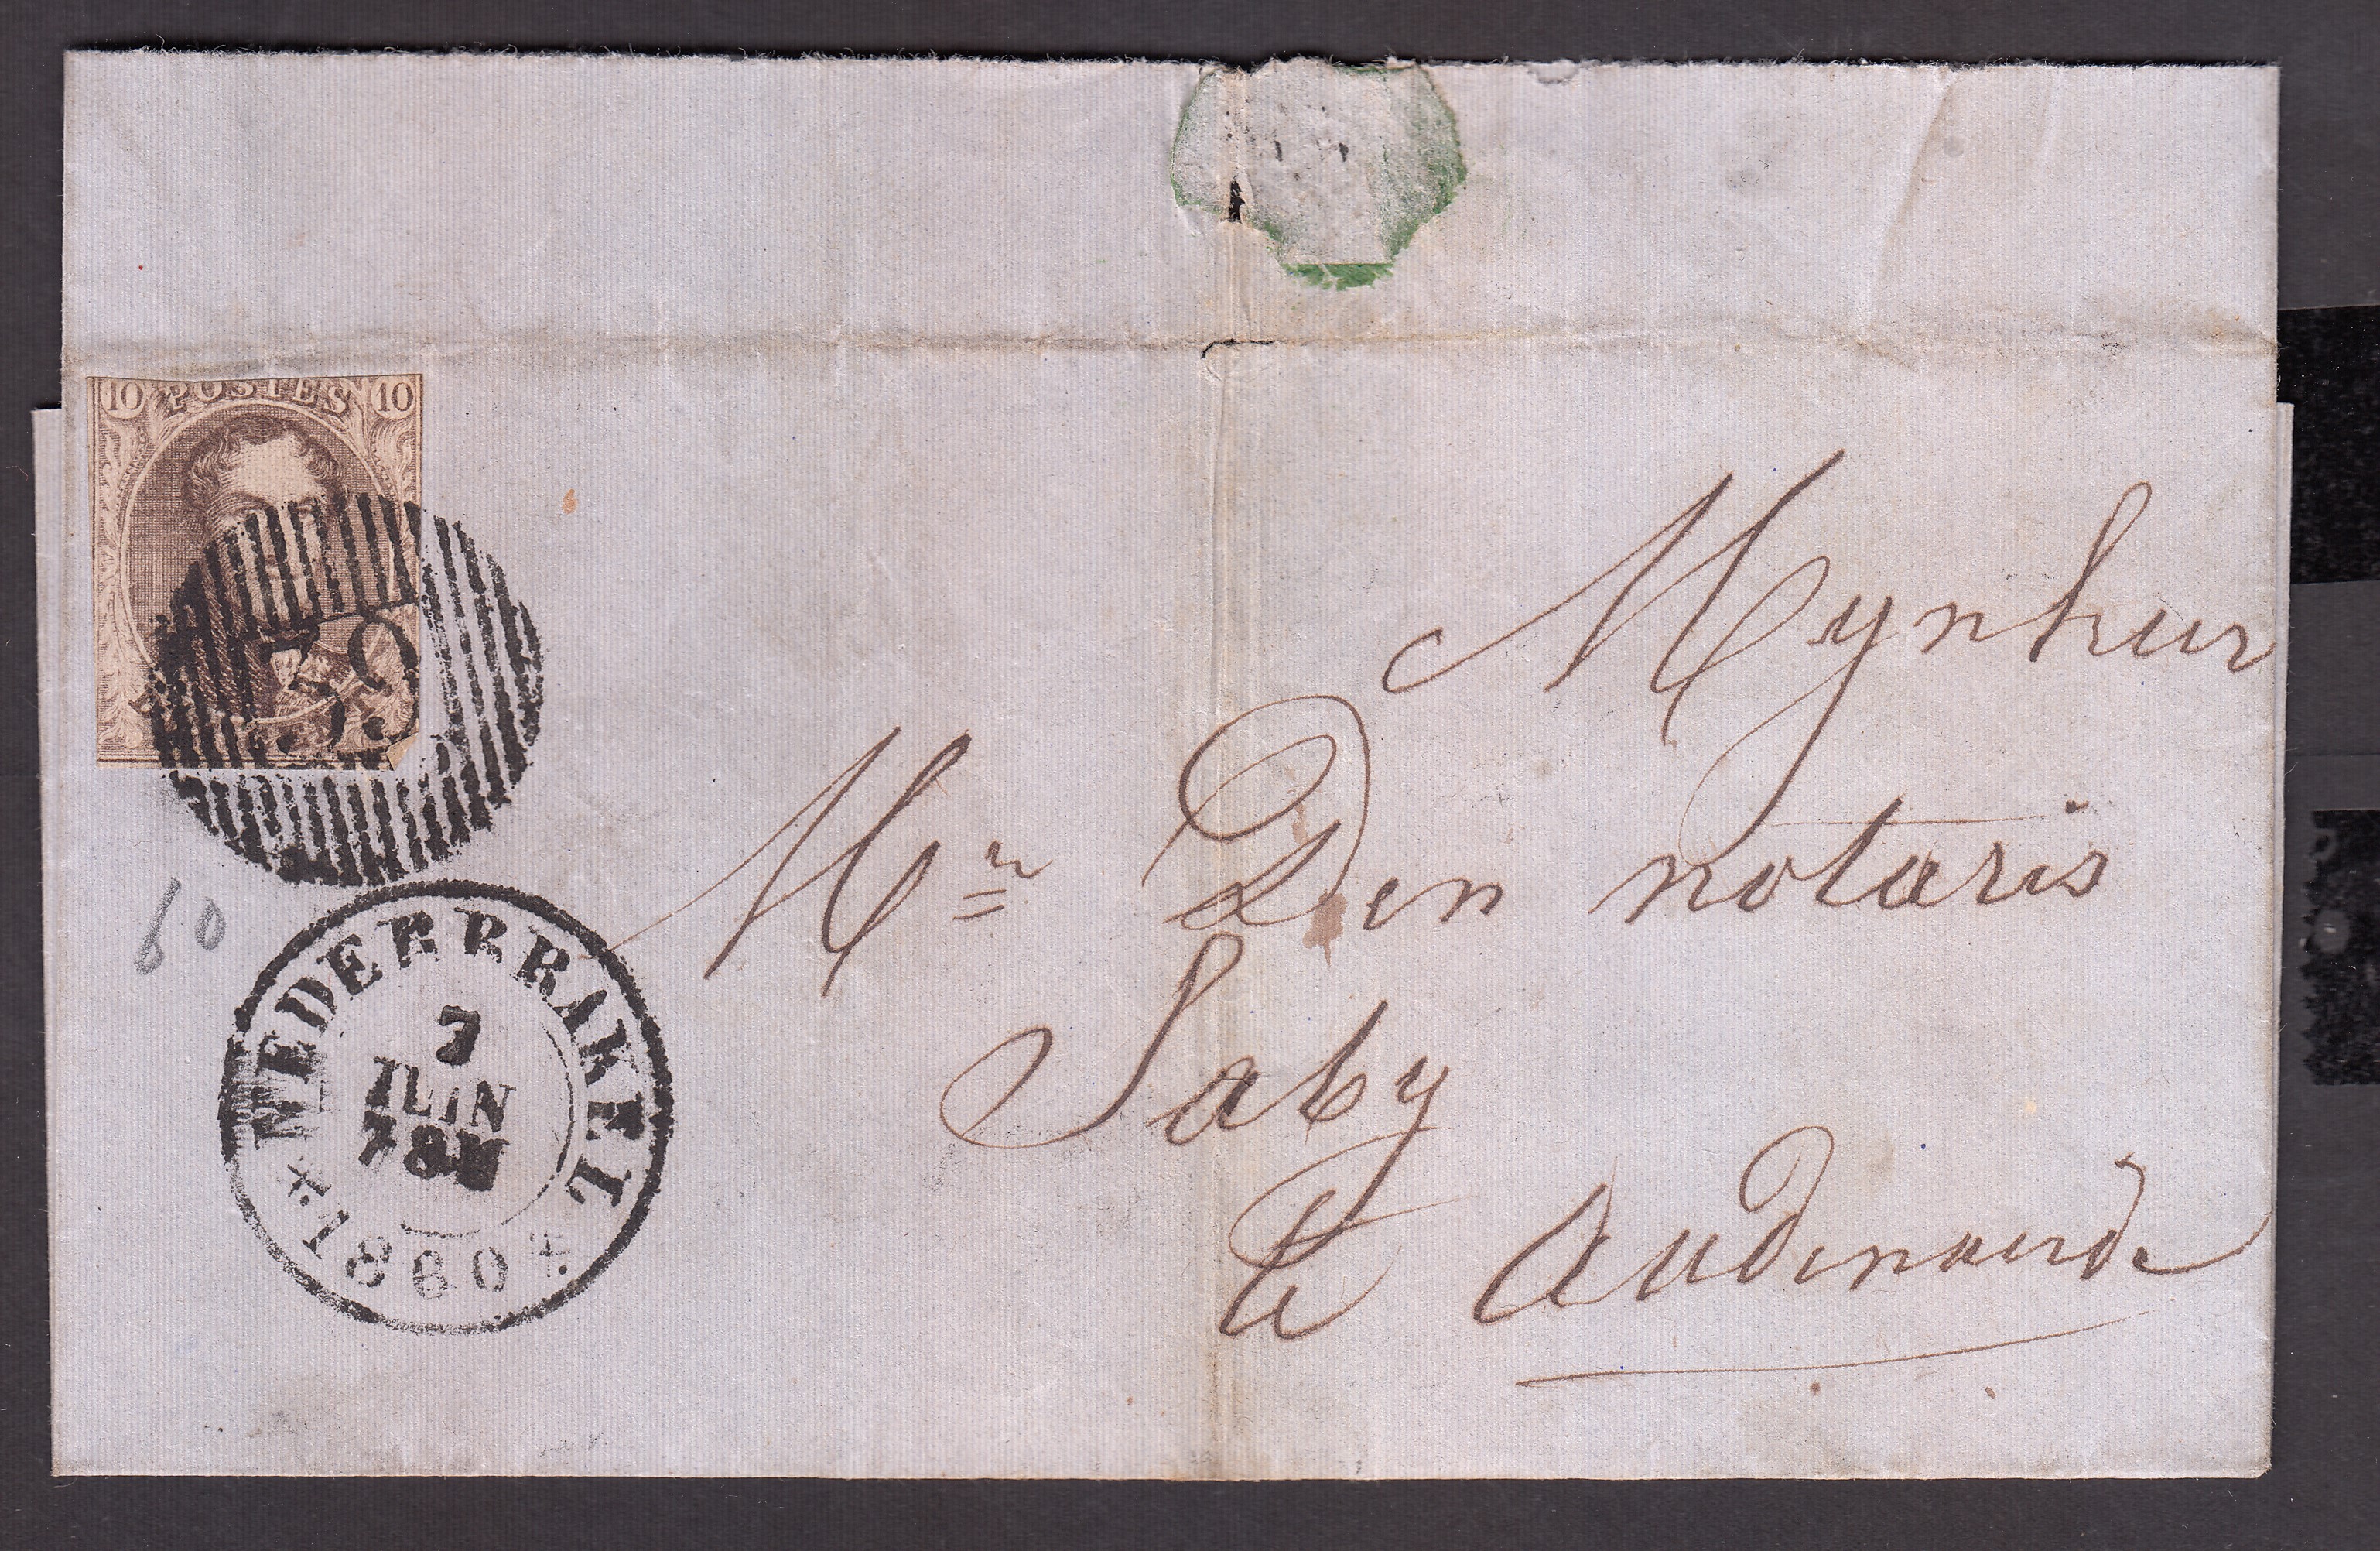 10 POSTES 10
39
Mynheer
Mr Den notaris
Saby
te Audenaerde
60
NEDERBRAKEL
7
JUIN
7-8M
1860